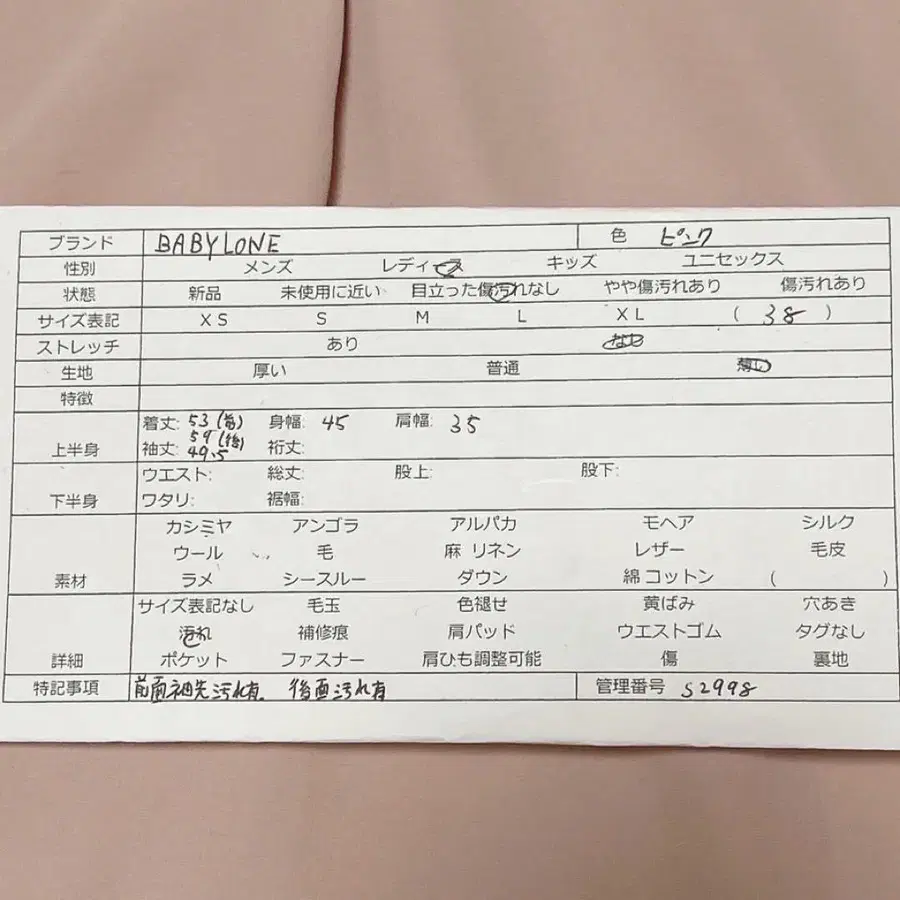 ブランド BABYLONE 色 ピンク
性別 メンズ レディース キッズ ユニセックス
状態 新品 未使用に近い 目立った傷汚れなし やや傷汚れあり 傷汚れあり
サイズ表記 XS S M L XL ( 38 )
ストレッチ あり なし
生地 厚い 普通 薄い
特徴
上半身 着丈: 53(前) 59(後) 身幅: 45 肩幅: 35
袖丈: 49.5 裄丈:
下半身 ウエスト: 総丈: 股上: 股下:
ワタリ: 裾幅:
素材 カシミヤ アンゴラ アルパカ モヘア シルク
ウール 毛 麻 リネン レザー 毛皮
ラメ シースルー ダウン 綿 コットン ( )
詳細 サイズ表記なし 毛玉 色褪せ 黄ばみ 穴あき
汚れ 補修痕 肩パッド ウエストゴム タグなし
ポケット ファスナー 肩ひも調整可能 傷 裏地
特記事項 前面袖先汚れ有 後面汚れ有 管理番号 S2998